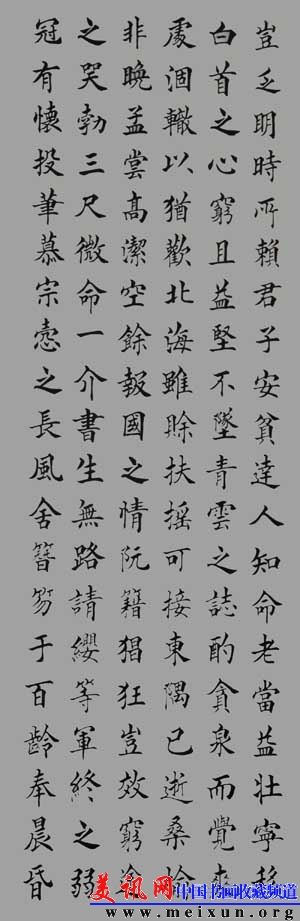 豈乏明時所賴君子安貧達人知命老當益壯寧移
白首之心窮且益堅不墜青雲之誌酌貪泉而覺爽
處涸轍以猶歡北海雖賒扶搖可接東隅已逝桑榆
非晚孟嘗高潔空餘報國之情阮籍猖狂豈效窮途
之哭勃三尺微命一介書生無路請纓等軍終之弱
冠有懷投筆慕宗愨之長風舍簪笏于百齡奉晨昏
美讯网 中国书画收藏频道
www.meixun.org